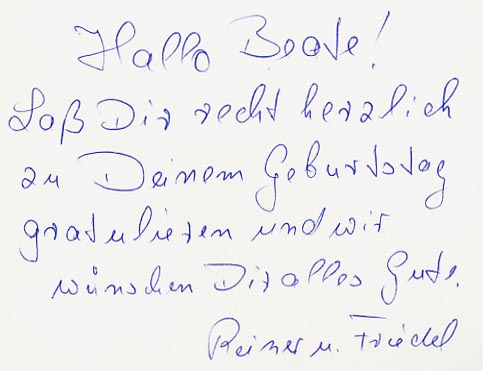 Hallo Beate!
Laß Dir recht herzlich
zu Deinem Geburtstag
gratulieren und wir
wünschen Dir alles Gute.
Reiner u. Friedel